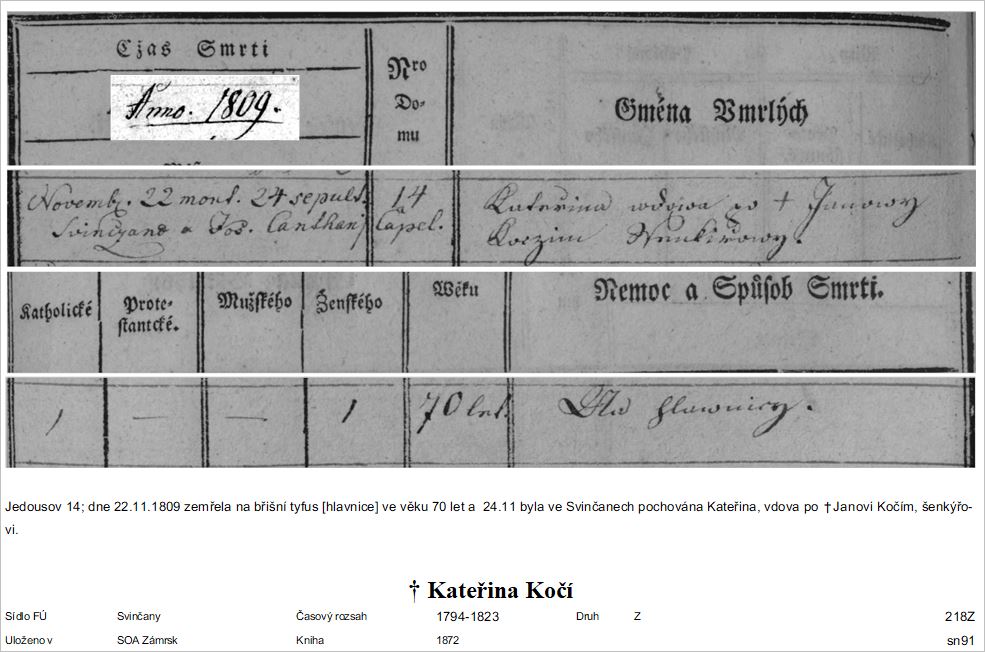 Cžas Smrti
Anno. 1809.
Nro
Do-
mu
Gména Vmrlých
Novemb. 22 mort. 24 sepult. 14
Svinczane a Jos. Canthanj Capel.
Kateřina wdowa po † Janowy
Koczim Ssenkirowy.
Katholické
Prote-
stantcké.
Mužského
Ženského
Wěku
Nemoc a Spůsob Smrti.
1 — — 1 70 let. Na hlawnicy.
Jedousov 14; dne 22.11.1809 zemřela na břišní tyfus [hlavnice] ve věku 70 let a 24.11 byla ve Svinčanech pochována Kateřina, vdova po †Janovi Kočím, šenkýřo-
vi.
† Kateřina Kočí
Sídlo FÚ Svinčany Časový rozsah 1794-1823 Druh Z 218Z
Uloženo v SOA Zámrsk Kniha 1872 sn91